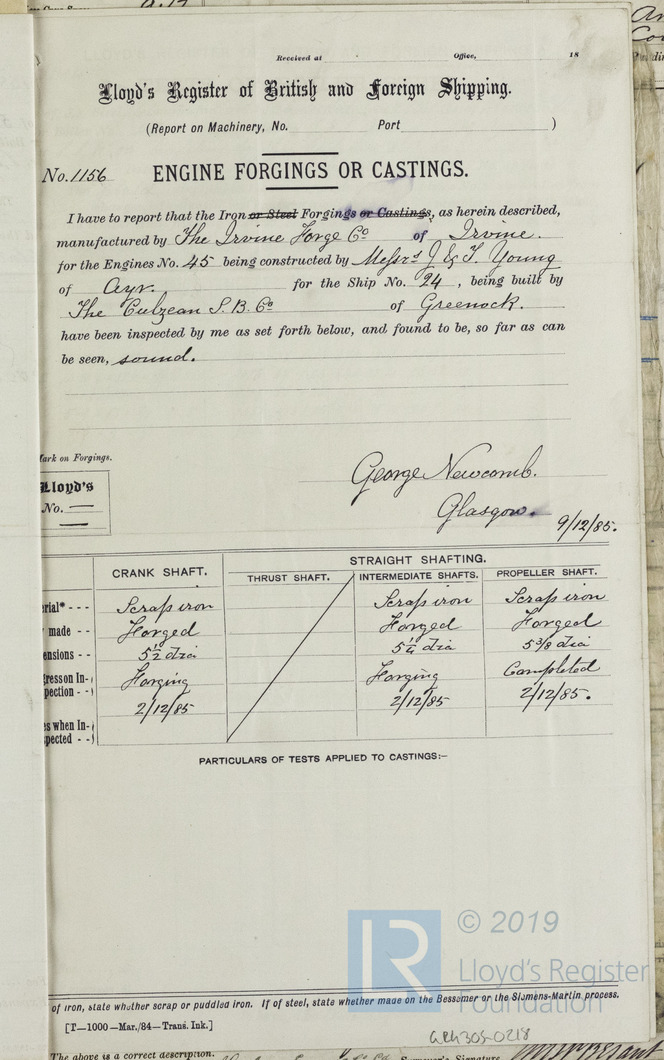 Received at Office, 18
Lloyd's Register of British and Foreign Shipping.
(Report on Machinery, No. Port )
No. 1156 ENGINE FORGINGS OR CASTINGS.
I have to report that the Iron or Steel Forgings or Castings, as herein described,
manufactured by The Irvine Forge Co of Irvine.
for the Engines No. 45 being constructed by Messrs J & T. Young
of Ayr. for the Ship No. 24, being built by
The Culzean S. B. Co of Greenock.
have been inspected by me as set forth below, and found to be, so far as can
be seen, sound.
Mark on Forgings.
Lloyd's
No. —
George Newcomb.
Glasgow.
9/12/85.
CRANK SHAFT. STRAIGHT SHAFTING.
THRUST SHAFT. INTERMEDIATE SHAFTS. PROPELLER SHAFT.
rial* - - - Scrap iron Scrap iron Scrap iron
made - - Forged Forged Forged
ensions - - 5½ dia 5¼ dia 5 3/8 dia
gress on In-
pection - - Forging Forging Completed
es when In-
spected - - 2/12/85 2/12/85 2/12/85.
PARTICULARS OF TESTS APPLIED TO CASTINGS:—
© 2019
LR
Lloyd's Register
Foundation
of iron, state whether scrap or puddled iron. If of steel, state whether made on the Bessemer or the Siemens-Martin process.
[T—1000—Mar./84—Trans. Ink.]
GRK305-0218
The above is a correct description.
Surveyor's Signature